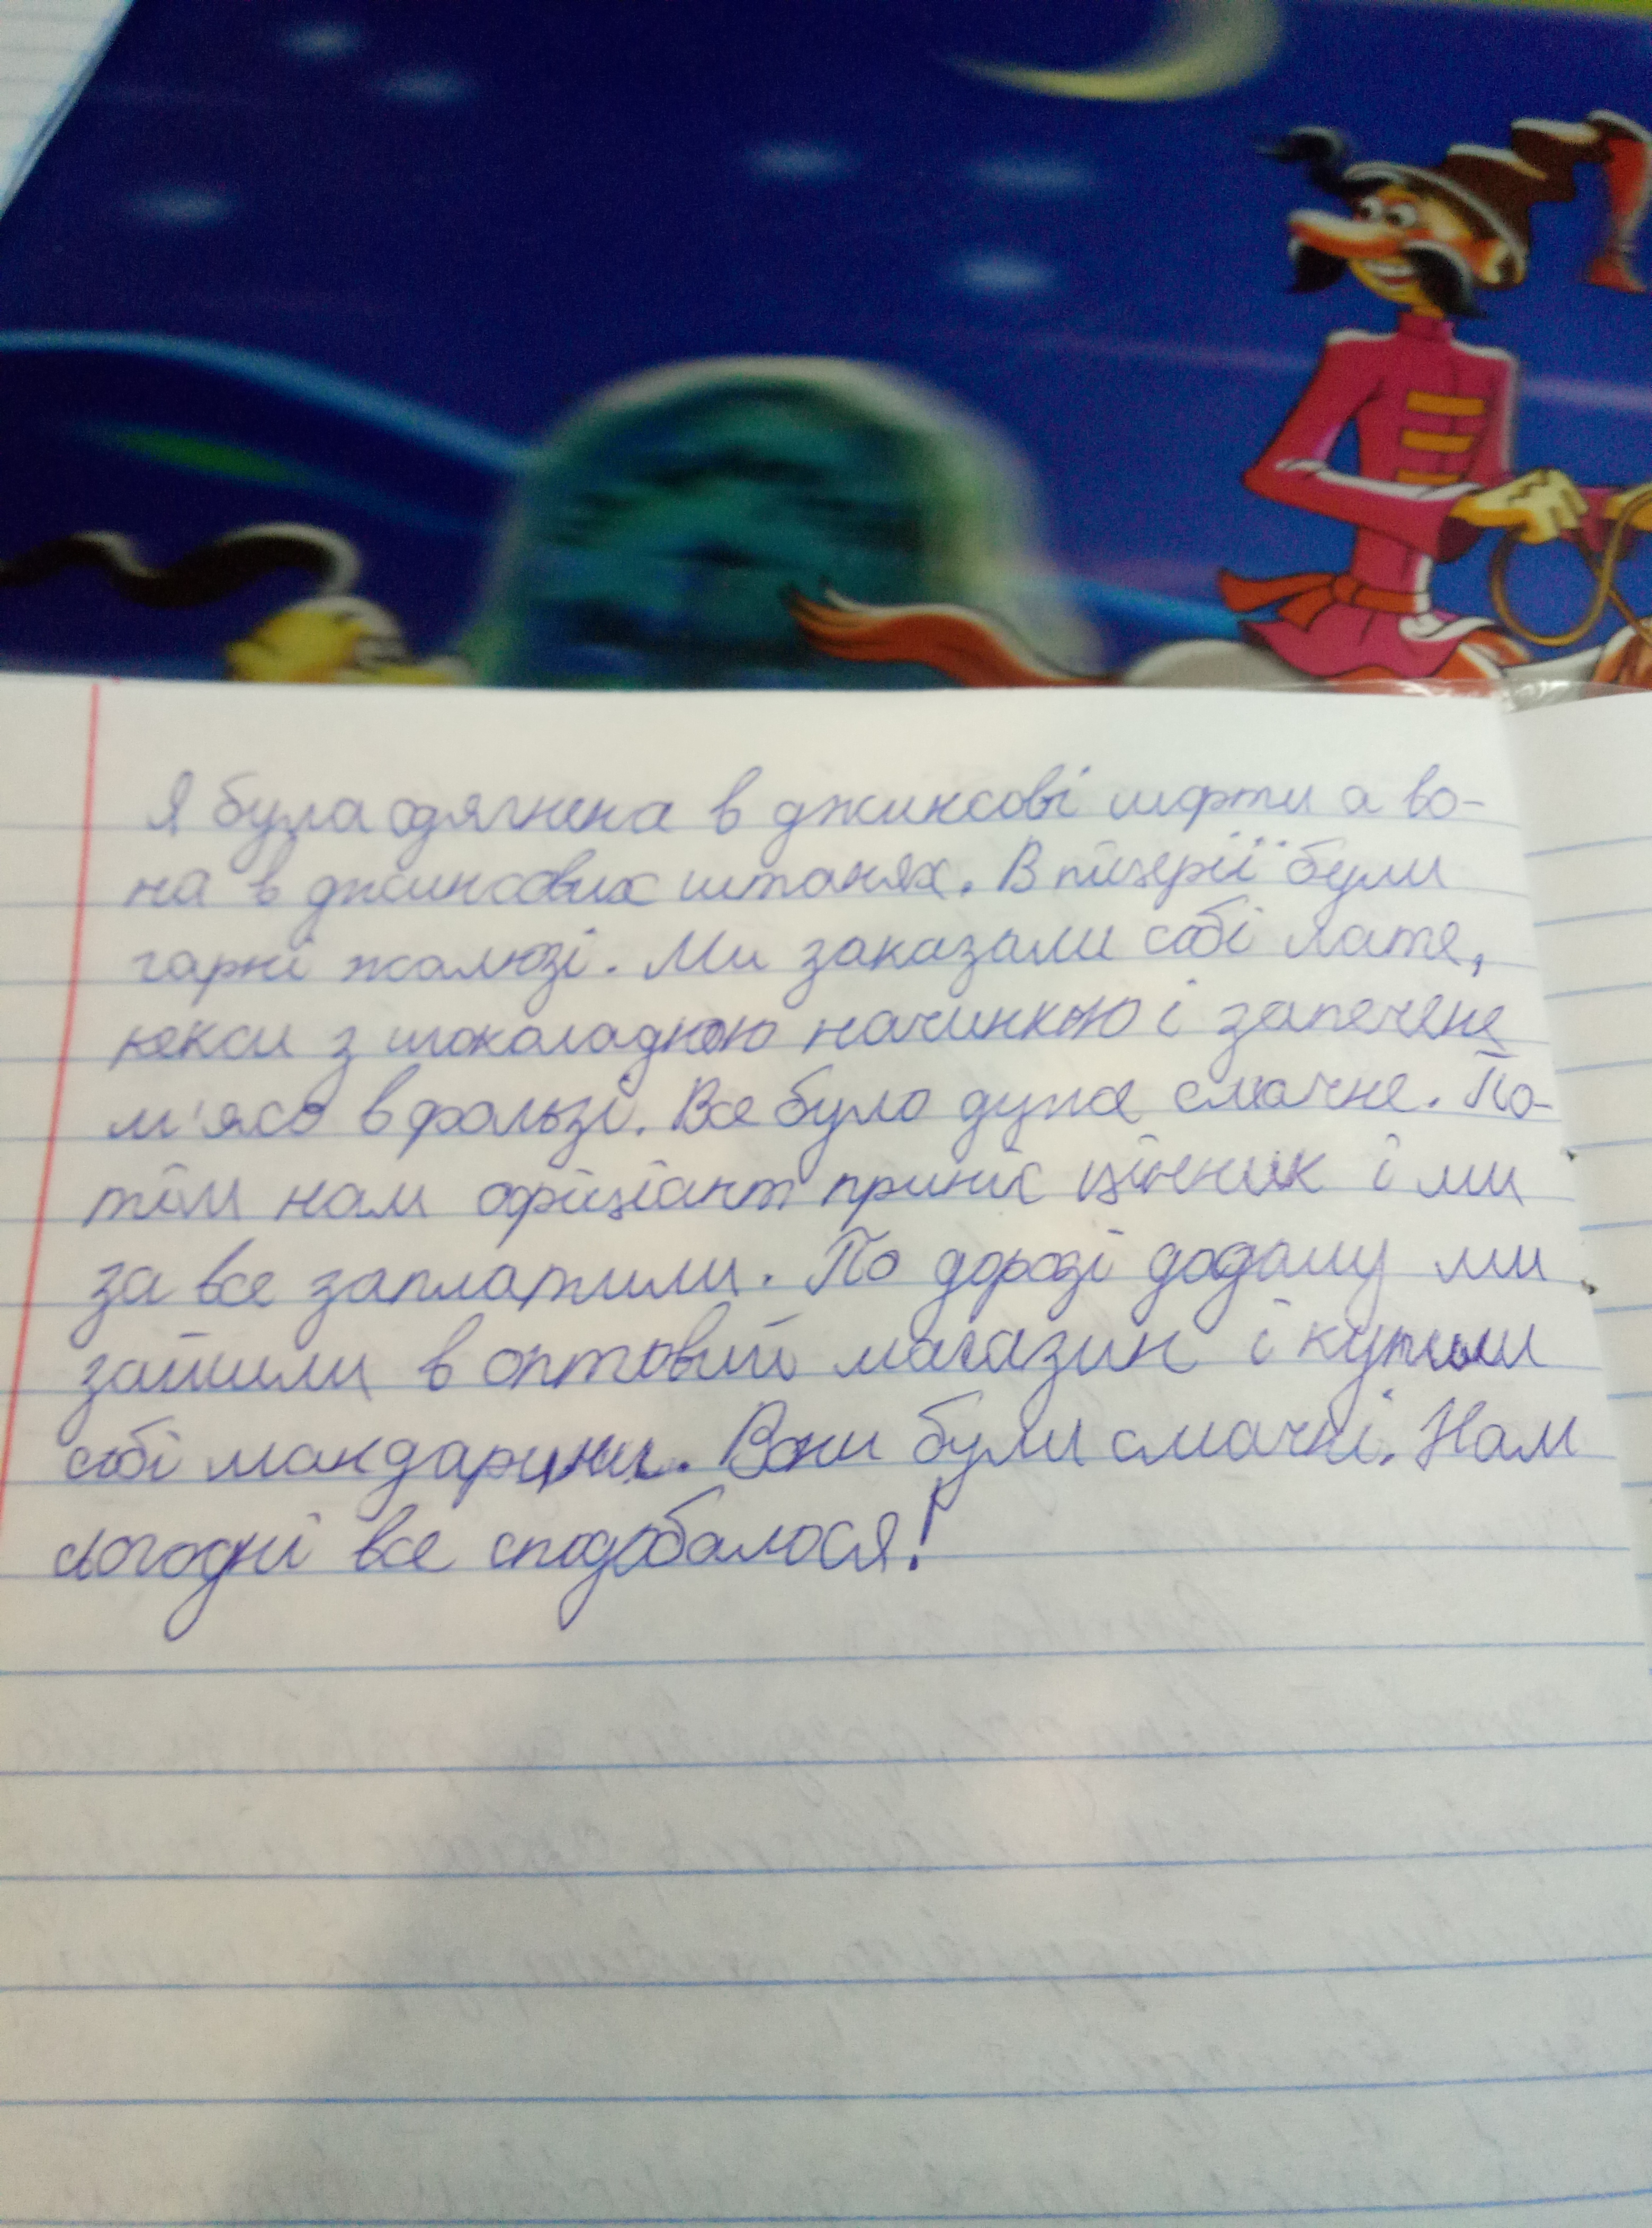 Я була одягнена в джинсові шорти а во-
на в джинсових штанях. В піцерії були
гарні жалюзі. Ми заказали собі лате,
кекси з шоколадною начинкою і запечене
м'ясо в фользі. Все було дуже смачне. По-
тім нам офіціант приніс цінник і ми
за все заплатили. По дорозі додому ми
зайшли в оптовий магазин і купили
собі мандарини. Вони були смачні. Нам
сьогодні все сподобалося!